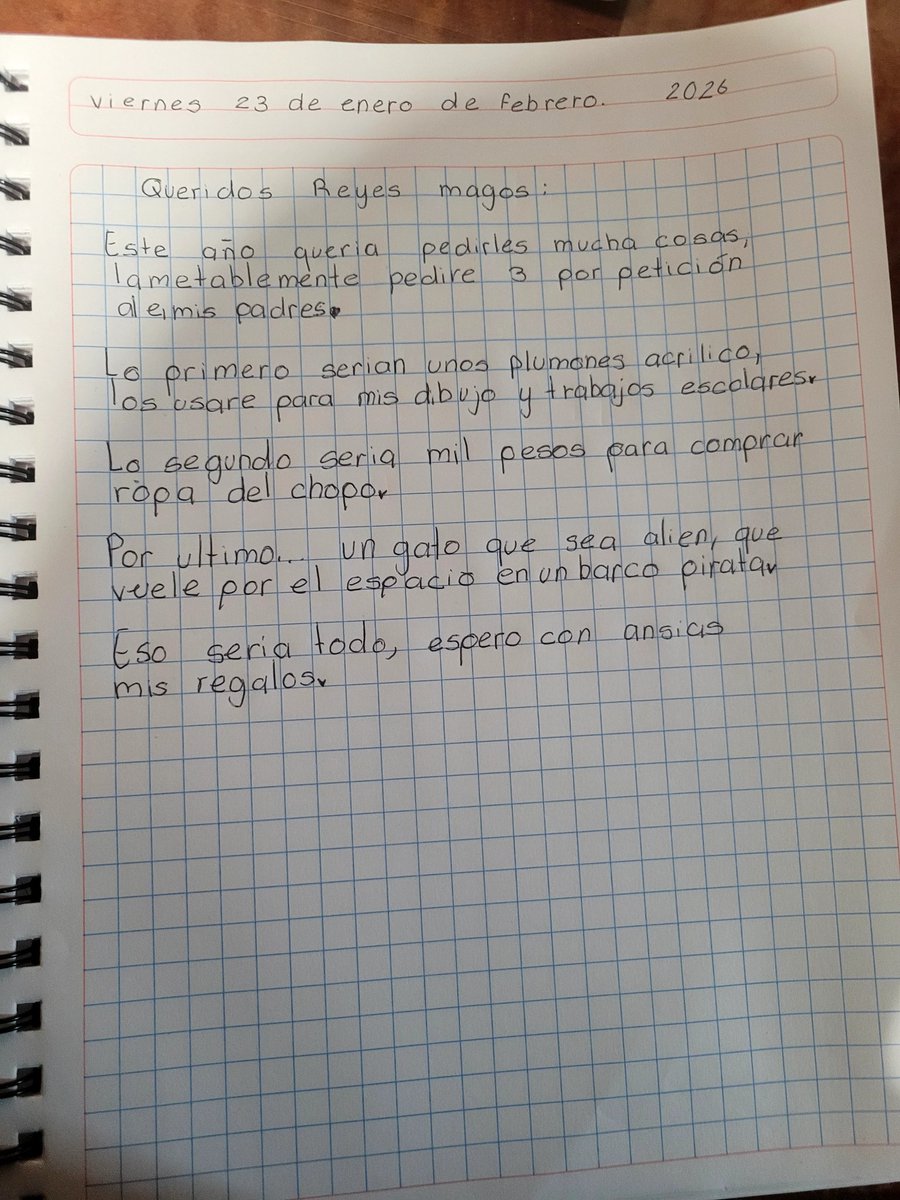 viernes 23 de enero de febrero. 2026
Queridos Reyes magos:
Este año queria pedirles mucha cosas,
lametablemente pedire 3 por petición
de mis padres.
Lo primero serian unos plumones acrilico,
los usare para mis dibujo y trabajos escolares.
Lo segundo seria mil pesos para comprar
ropa del chopo.
Por ultimo... un gato que sea alien, que
vuele por el espacio en un barco pirata.
Eso seria todo, espero con ansias
mis regalos.